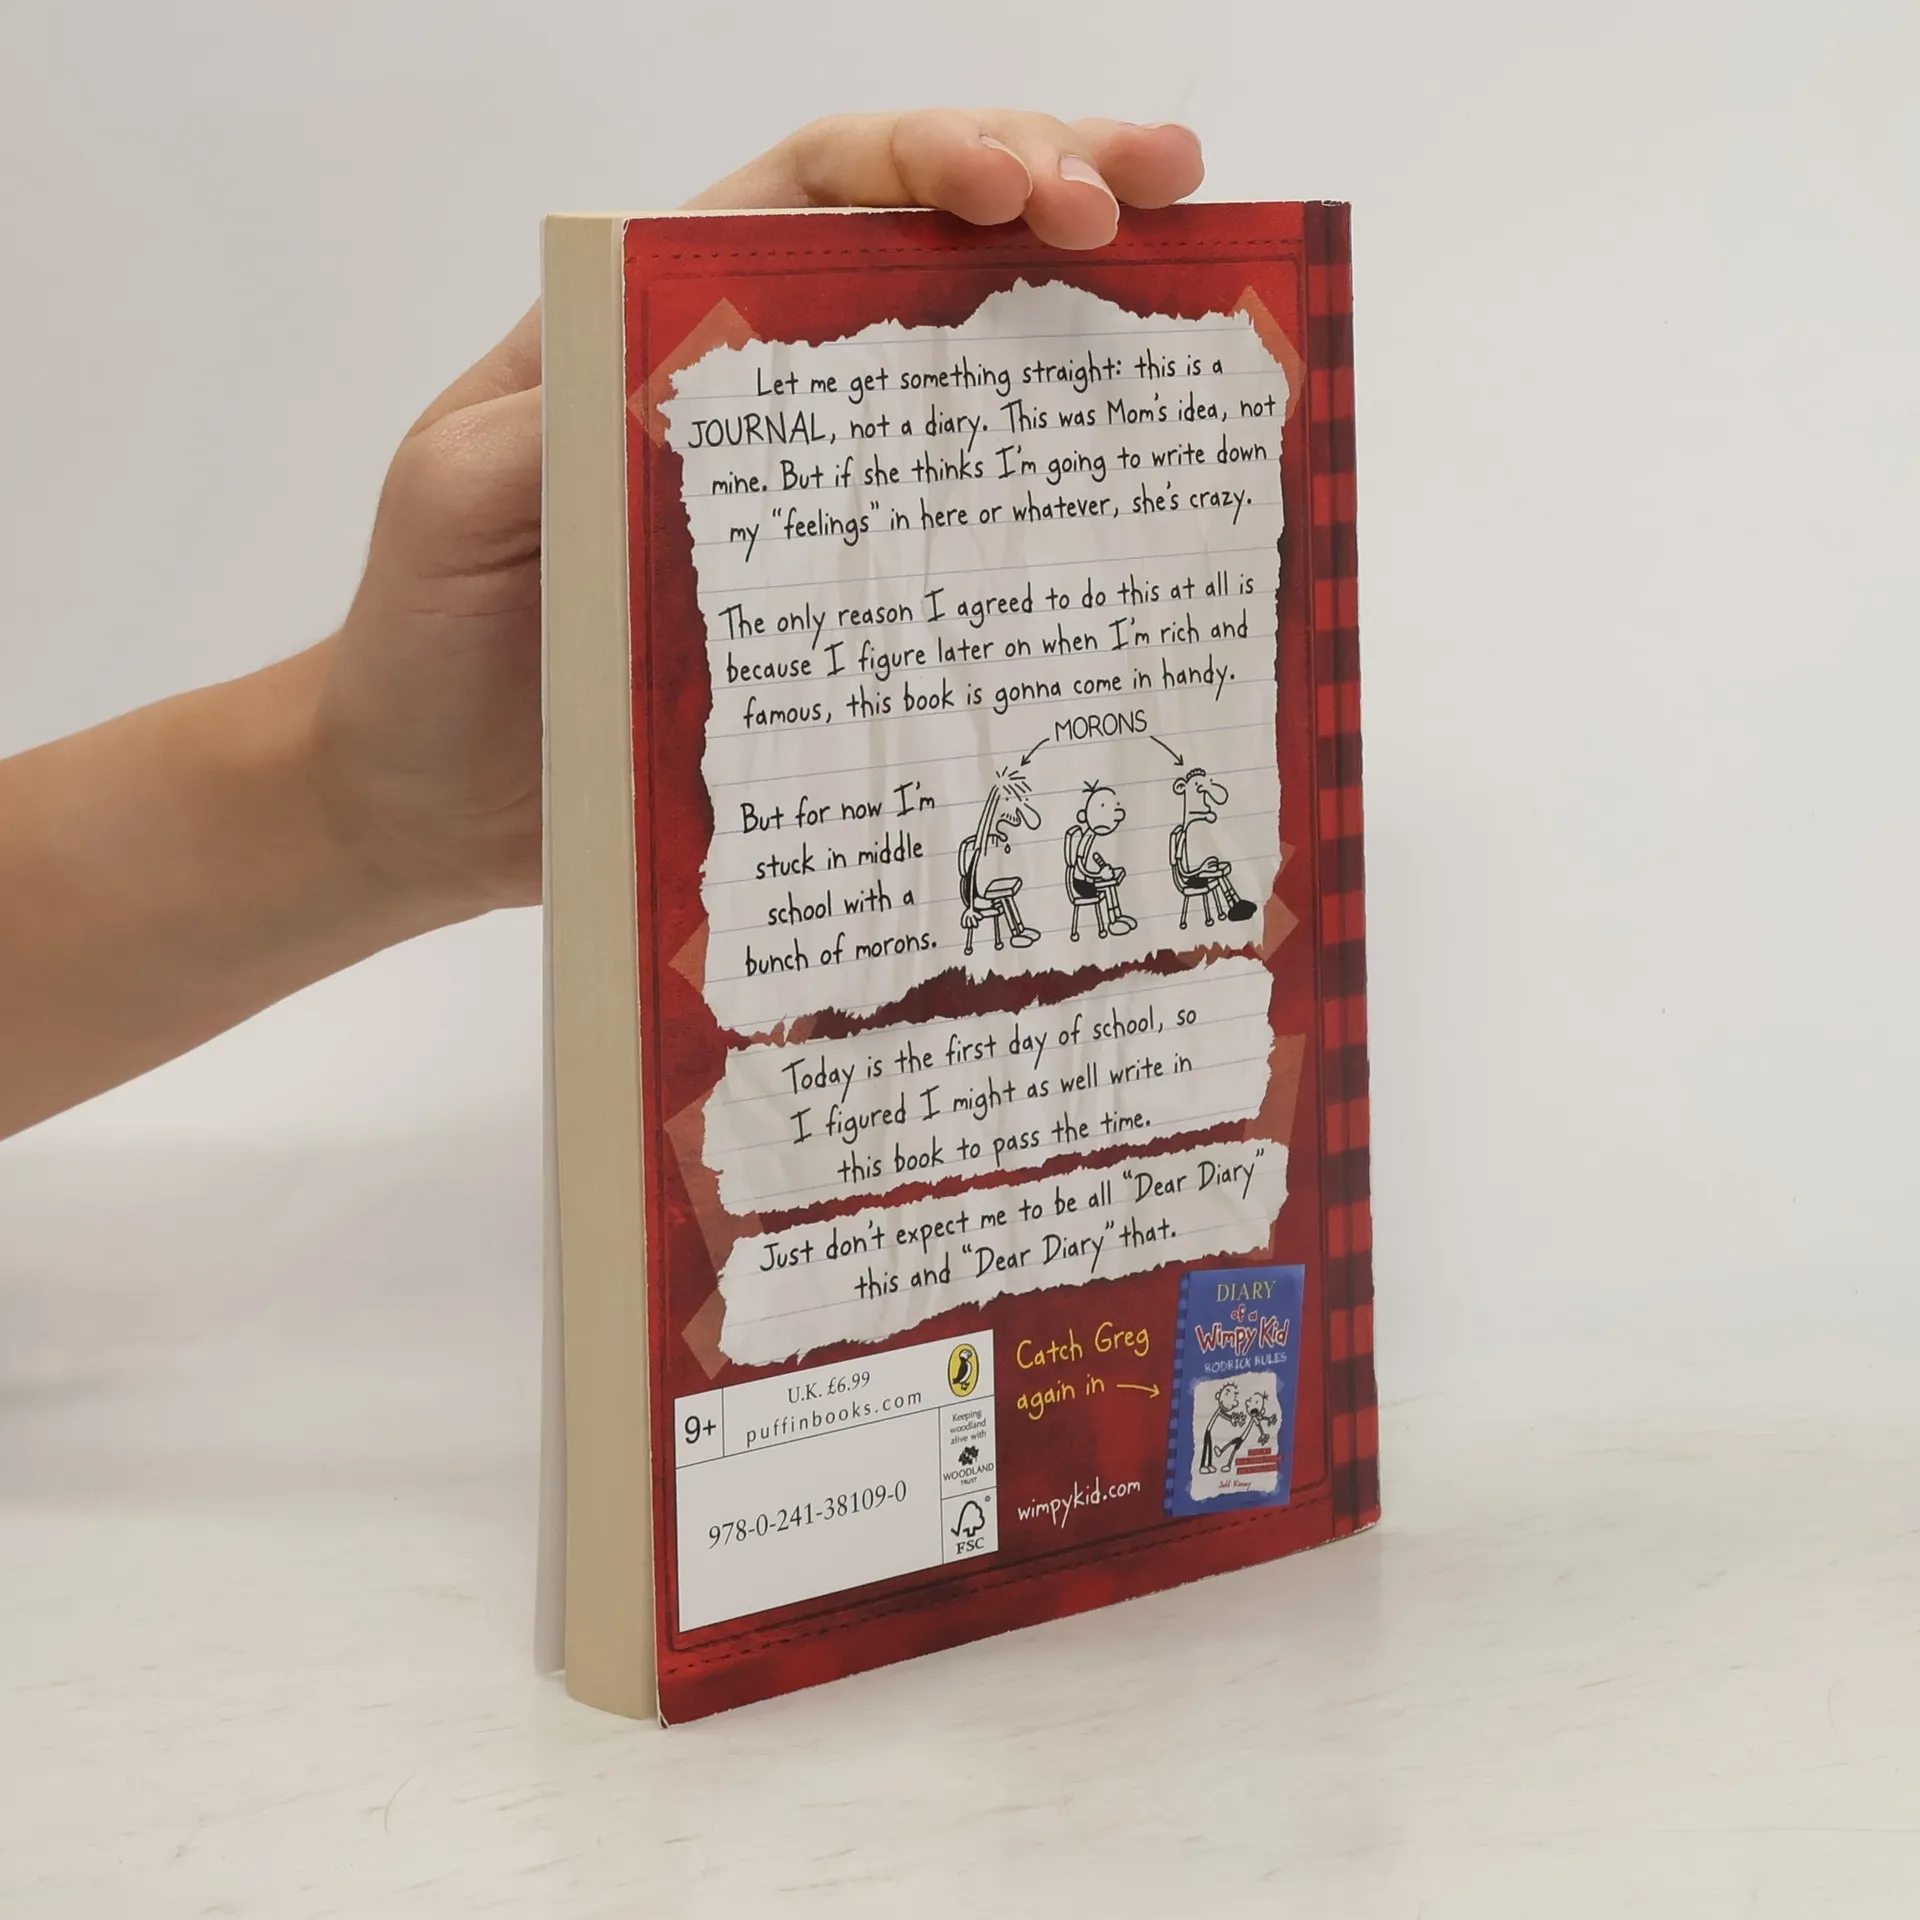 Let me get something straight: this is a
JOURNAL, not a diary. This was Mom's idea, not
mine. But if she thinks I'm going to write down
my "feelings" in here or whatever, she's crazy.
The only reason I agreed to do this at all is
because I figure later on when I'm rich and
famous, this book is gonna come in handy.
MORONS
But for now I'm
stuck in middle
school with a
bunch of morons.
Today is the first day of school, so
I figured I might as well write in
this book to pass the time.
Just don't expect me to be all "Dear Diary"
this and "Dear Diary" that.
9+
U.K. £6.99
puffinbooks.com
Keeping
woodland
alive with
WOODLAND
TRUST
978-0-241-38109-0
FSC
Catch Greg
again in
wimpykid.com
DIARY
of a
Wimpy Kid
RODRICK RULES
Jeff Kinney